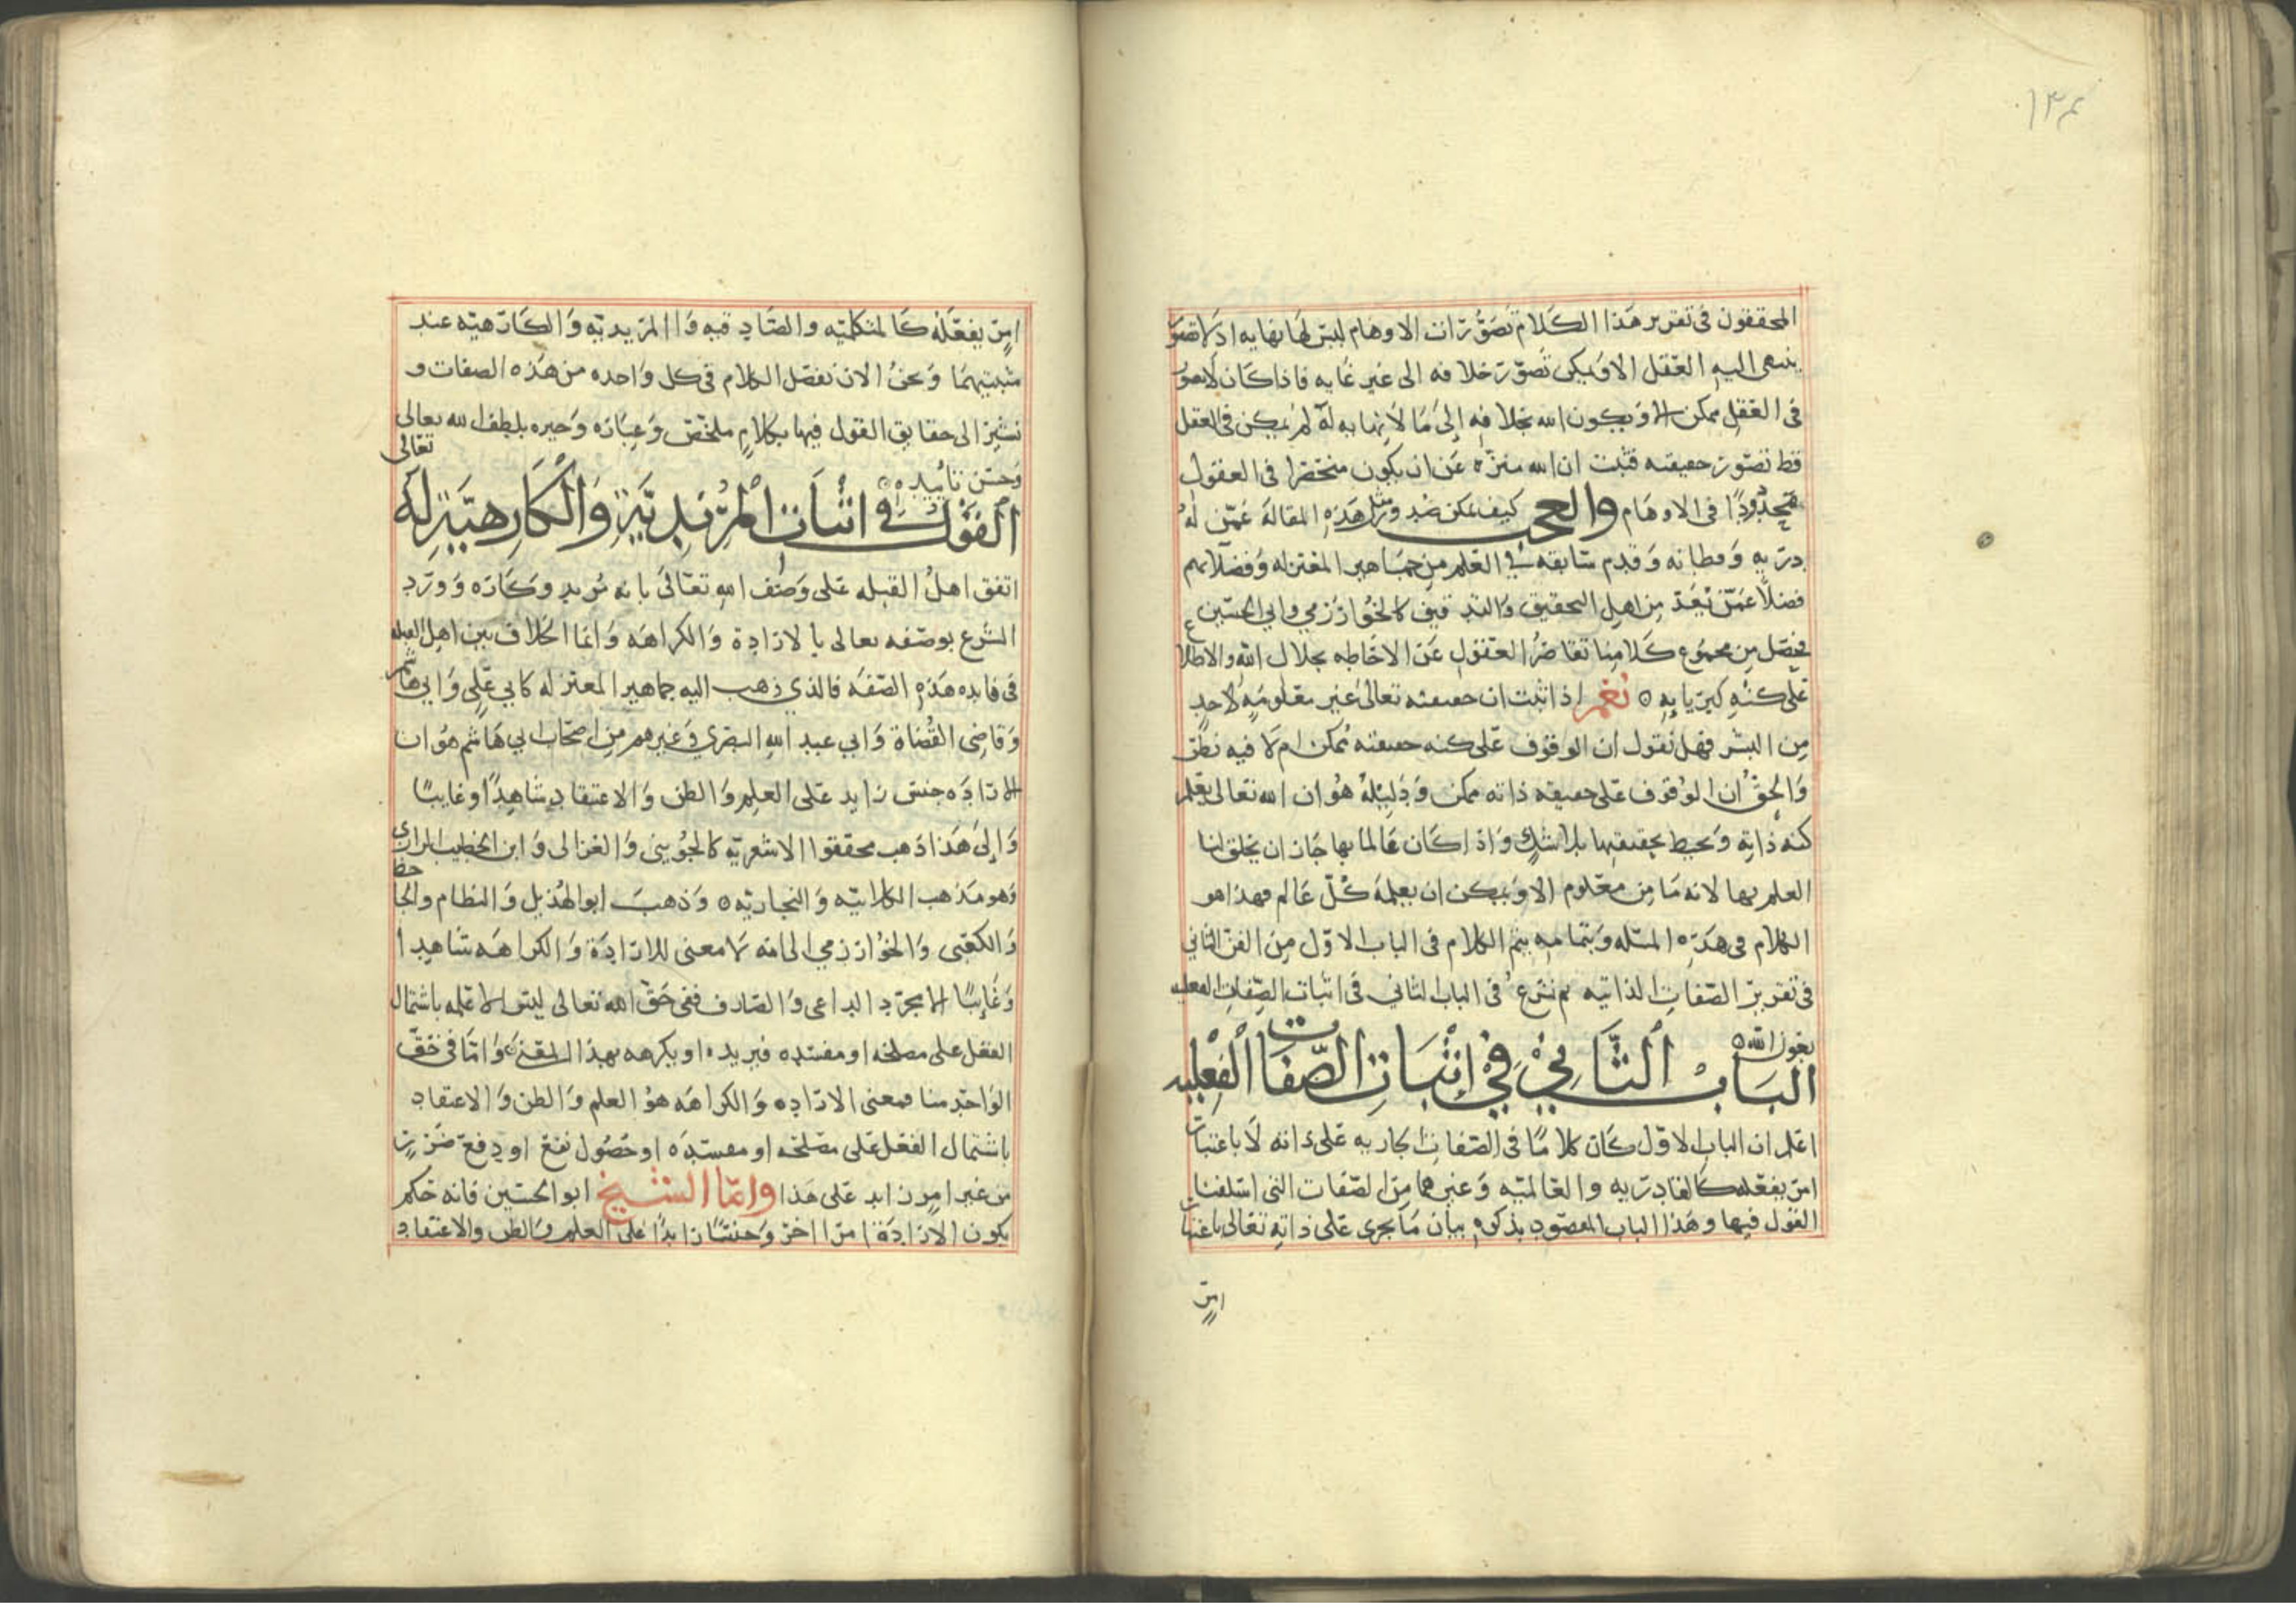 ١٣٤
المحققون في تقرير هذا الكلام تصورات الاوهام ليس لها نهايه اذ لا تصور
ينتهى اليه العقل الا ويمكن تصور خلافه الى غير غايه فاذا كان لا تصور
فى العقل ممكن الا ويكون الله بخلافه إلى ما لا نهايه له لم يمكن فى العقل
قط تصور حقيقته فثبت ان الله منزه عن ان يكون منحصرا فى العقول
محدودًا فى الاوهام والعجب كيف يمكن صدور مثل هذه المقالة عمن له
دربه وفطانه وقدم سابقه في العلم من جماهير المعتزله وفضلائهم
فضلاً عمن يعد من اهل التحقيق والتدقيق كالخوارزمي وابي الحسين
فحصل من مجموع كلامنا تقاصر العقول عن الاحاطه بجلال الله والاطلاع
على كنه كبريايه ٥ نعم اذا ثبت ان حقيقته تعالى غير معلومه لاحد
من البشر فهل نقول ان الوقوف على كنه حقيقته ممكن ام لا فيه نظر
والحق ان الوقوف على حقيقه ذاته ممكن ودليله هو ان الله تعالى يعلم
كنه ذاته ويحيط بحقيقتها بلا شك واذا كان عالما بها جاز ان يخلق لنا
العلم بها لانه ما من معلوم الا ويمكن ان يعلمه كل عالم فهذا هو
الكلام فى هذه المسله وبتمامه يتم الكلام فى الباب الاول من الفن الثاني
فى تقرير الصفات الذاتيه ثم نشرع فى الباب الثاني في اثبات الصفات الفعليه
بعون الله ٥
الباب الثاني في إثبات الصفات الفعليه
اعلم ان الباب الاول كان كلامًا فى الصفات الجاريه على ذاته لا باعتبار
امر يفعله كالقادريه والعالميه وغيرهما من الصفات التى اسلفنا
القول فيها وهذا الباب المقصود بذكره بيان ما يجرى على ذاته تعالى باعتبار
امر
امر يفعله كالمتكلميه والصادقيه والمريديه والكارهيه عند
مثبتيهما ونحن الان نفصل الكلام في كل واحده من هذه الصفات و
نشير الى حقايق القول فيها بكلام ملخص وعباره وجيزه بلطف الله تعالى
وحسن تاييده ٥
القول في اثبات المريدية والكارهية له تعالى
اتفق اهل القبله على وصف الله تعالى بانه مريد وكاره وورد
الشرع بوصفه تعالى بالارادة والكراهه وانما الخلاف بين اهل القبله
فى فايده هذه الصفه فالذي ذهب اليه جماهير المعتزله كابي علي وابي هاشم
وقاضى القضاة وابي عبد الله البصري وغيرهم من اصحاب ابي هاشم هو ان
الاراده جنس زايد على العلم والظن والاعتقاد شاهدًا وغايبًا
وإلى هذا ذهب محققوا الاشعريه كالجويني والغزالى وابن الخطيب الرازى
وهو مذهب الكلابيه والنجاريه ٥ وذهب ابو الهذيل والنظام والجاحظ
والكعبى والخوارزمي الى انه لا معنى للارادة والكراهه شاهدا
وغايبًا الا مجرد الداعى والصارف ففى حق الله تعالى ليس الا علمه باشتمال
الفعل على مصلحه او مفسده فيريده او يكرهه بهذا المعنى واما فى حق
الواحد منا فمعنى الاراده والكراهه هو العلم والظن والاعتقاد
باشتمال الفعل على مصلحه او مفسده او حصول نفع او دفع ضرر
من غير امر زايد على هذا واما الشيخ ابو الحسين فانه حكم
بكون الارادة امرا اخر وجنسًا زايدًا على العلم والظن والاعتقاد